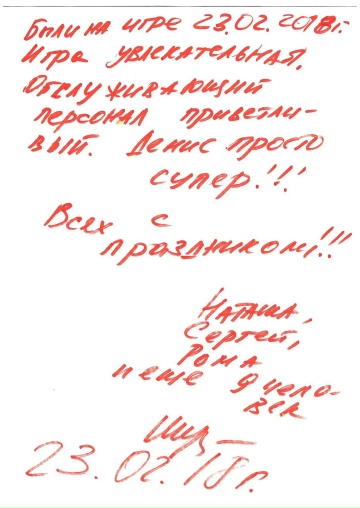 Были на игре 23.02.2018г.
Игра увлекательная.
Обслуживающий
персонал приветли-
вый. Денис просто
супер!!!
Всех с
праздником!!!
Наташа,
Сергей,
Рома
и еще 9 чело-
век
23.02.18г.